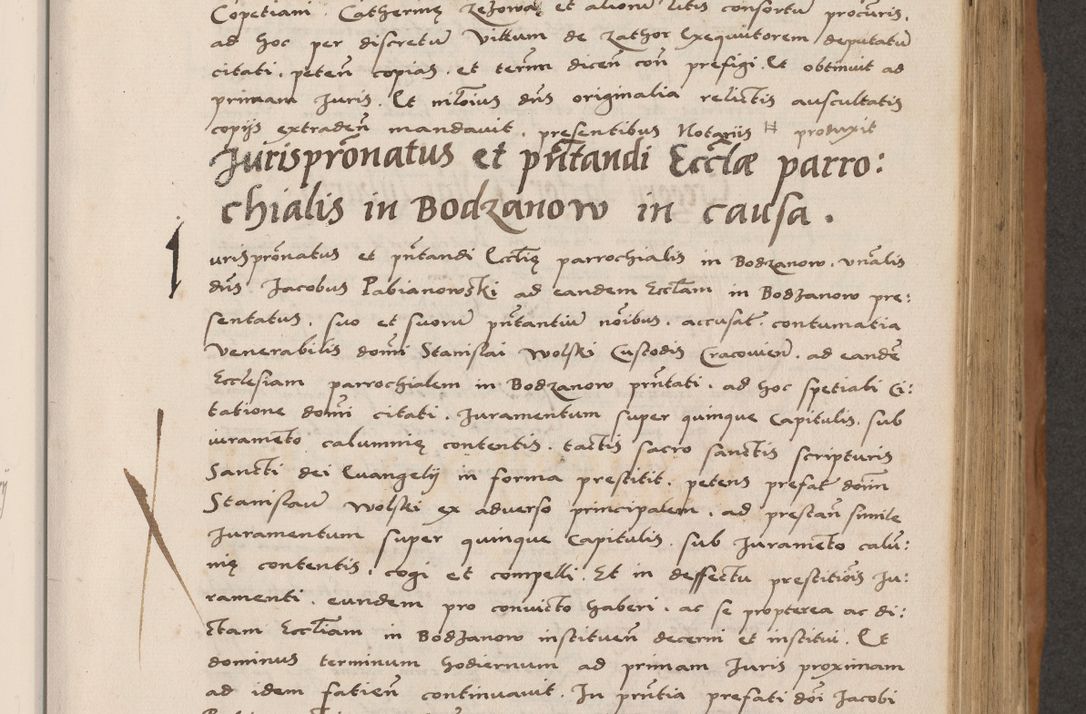 Copetiani . Catherinę Zezowa et aliorũ litis consortũ procuris.
ad hoc per discretũ Vittum de Zathor Exequutorem deputatũ
citati . peteñ copias . et termm diceñ coñ prefigi . Et obtinuit ad
primam Juris . Et nilõius dñs originalia relictis auscultatis
copijs extradeñ mandavit . presentibus Notariis # protuxit
Jurispro͠natus et pñ͠tandi Eccl͠æ parro:
chialis in Bodzanow in causa .
Jurispro͠natus et pñ͠tandi Eccl͠ię parrochialis in Bodzanow . vñ͠alis
dñs Jacobus Pabianowski ad eandem Eccl͠am in Bodzanow pre:
sentatus . suo et suorũ pñ͠tantiũ nõ͠ibus . accusat . contumatia
venerabilis domĩ Stanislai Wolski Custodis Cracovieñ . ad eandẽ
Ecclesiam parrochialem in Bodzanow prñ͠tati . ad hoc spetiali Ci:
tatione domĩ citati . Juramentum super quinque Capitulis . sub
iuramẽto calumnię contentis . tactis sacro sanctis scripturis
Sancti dei Euangelij in forma prestitit . petens prefat domĩn
Stanislaũ Wolski ex adverso principalem . ad prestañ simile
Juramentum super quinque Capitulis . sub Juramẽto calũ:
nię contentis . cogi et compelli . Et in deffectu prestitiõis Ju:
ramenti . eundem pro convicto haberi . ac se propterea ac di:
ctam Eccl͠iam in Bodzanow instituẽñ decerni et institui . Et
dominus terminum hodiernum ad primam Juris proximam
ad idem fatieñ continuavit . In prñ͠tia prefati dõi Jacobi